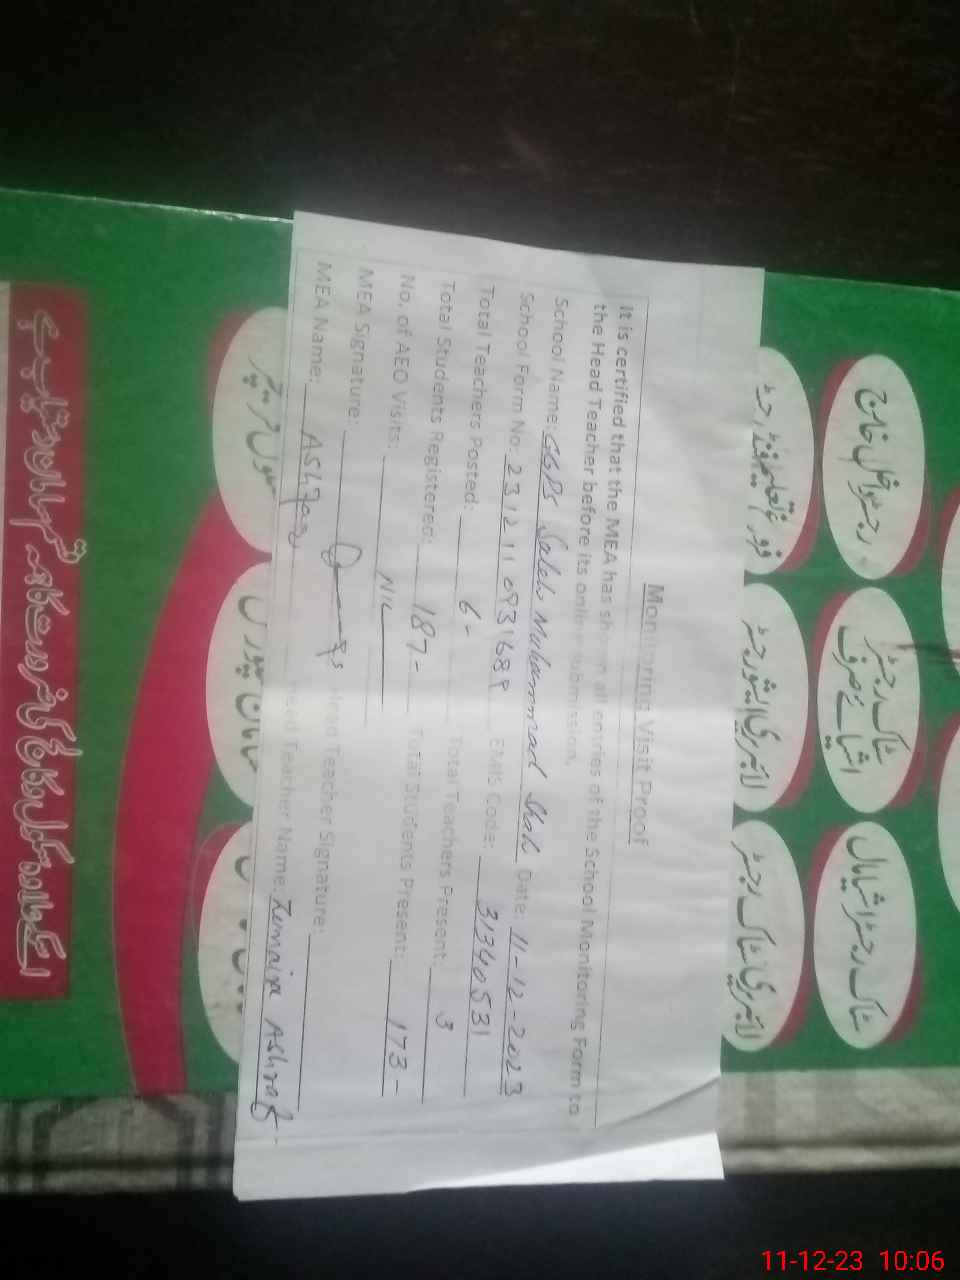 Monitoring Visit Proof
It is certified that the MEA has shown all entries of the School Monitoring Form to
the Head Teacher before its online submission.
School Name: GGPS Saleh Muhammad Shah Date: 11-12-2023
School Form No: 2312110931689 EMIS Code: 31340531
Total Teachers Posted: 6- Total Teachers Present: 3
Total Students Registered: 187- Total Students Present: 173-
No. of AEO Visits: NIL
MEA Signature: Head Teacher Signature:
MEA Name: Ashfaq Head Teacher Name: Zumaira Ashraf
رجسٹر داخل خارج
سٹاک رجسٹر
اشیائے صرف
سٹاک رجسٹر اشیا مال
فروغ تعلیم فنڈ رجسٹر
لائبریری ایشو رجسٹر
لائبریری سٹاک رجسٹر
11-12-23 10:06